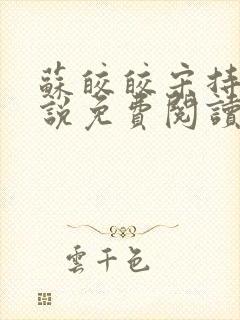 蘇皎皎宋持
說免費閱讀
雲千色